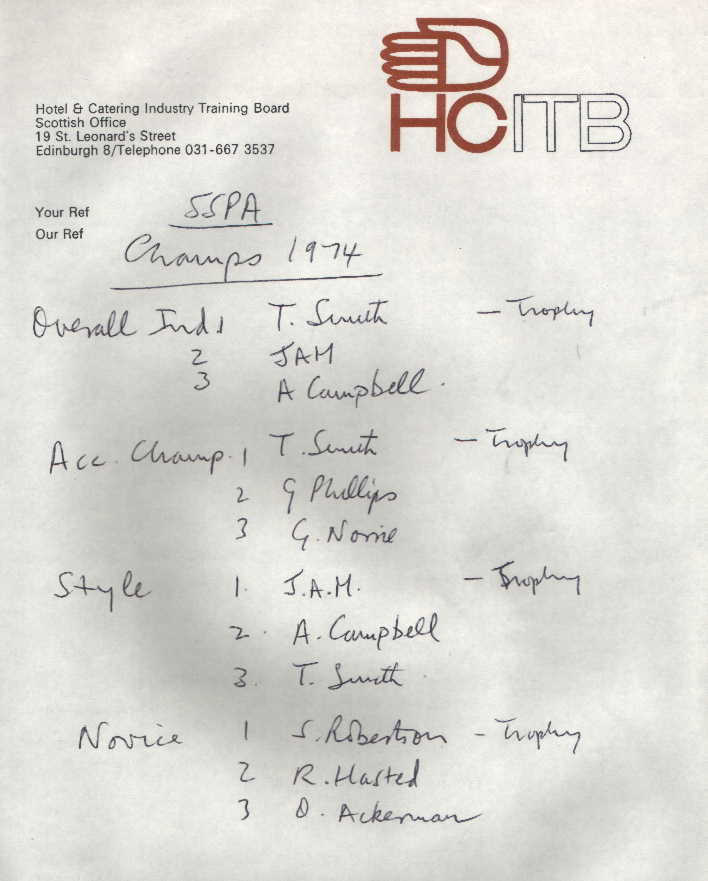 HCITB
Hotel & Catering Industry Training Board
Scottish Office
19 St. Leonard's Street
Edinburgh 8/Telephone 031-667 3537
Your Ref
Our Ref
SSPA
Champs 1974
Overall Ind 1 T. Smith — Trophy
2 JAM
3 A Campbell.
Acc. Champ. 1 T. Smith — Trophy
2 G Phillips
3 G. Norrie
Style 1. J.A.M. — Trophy
2. A. Campbell
3. T. Smith
Novice 1 S. Robertson - Trophy
2 R. Hasted
3 D. Ackerman